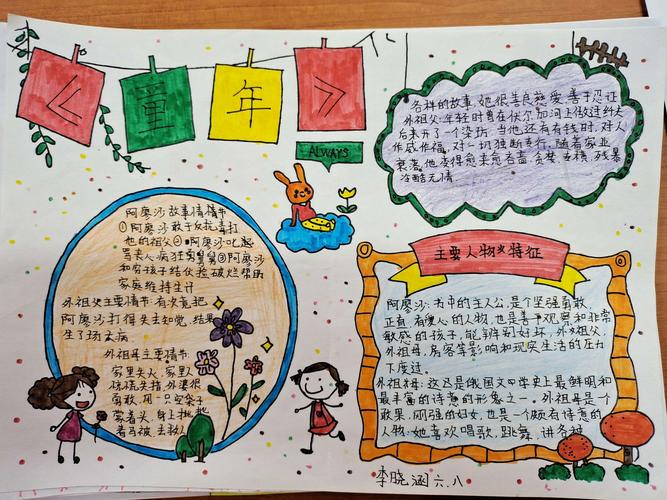 《童年》
ALWAYS
各样的故事,她很善良慈爱,善于忍让
外祖父:年轻时曾在伏尔加河上做过纤夫
后来开了一个染坊,当他还有有钱时,对人
作威作福,对一切独断专行,随着家业
衰落,他变得愈来愈吝啬,贪婪,专横,残暴
冷酷无情
阿廖沙故事情情节
①阿廖沙敢于反抗毒打
他的祖父②阿廖沙吃起
哥哥和穷孩子结伙捡破烂帮助
家庭维持生计
外祖父主要情节:有次竟把
阿廖沙打得失去知觉,结果
生了场大病
外祖母主要情节
家里失火,家里人
惊慌失措,外婆很
勇敢,用一只空袋子
蒙着头,身上披地
着马被,去救人
主要人物及特征
阿廖沙:书中的主人公,是个坚强勇敢,
正直,有爱心的人物,也是善于观察和非常
敏感的孩子,能辨别好坏,外祖父,
外祖母,房客等影响和现实生活的压力
下度过。
外祖母:这乃是俄国文学史上最鲜明和
最丰富的诗意的形象之一。外祖母是个
果,刚强的妇女,也是一个颇有诗意的
人物:她喜欢唱歌,跳舞,讲各种
李晓涵六.八